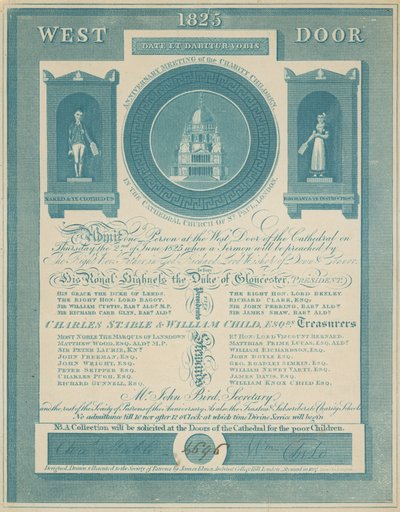 1825
WEST DOOR
DATE ET DABITUR VOBIS
ANNIVERSARY MEETING of the CHARITY CHILDREN,
IN THE CATHEDRAL CHURCH OF ST PAUL, LONDON.
NAKED & YE CLOTHED US
IGNORANT & YE INSTRUCTED US
Admit one Person at the West Door of the Cathedral on
Thursday the 2nd of June 1825 when a Sermon will be preached by
The Right Revd Lord Bishop of
His Royal Highness the Duke of Gloucester, PRESIDENT;
HIS GRACE THE DUKE OF LEEDS.
THE RIGHT HON. LORD BAGOT.
SIR WILLIAM CURTIS, BART ALDN M.P.
SIR RICHARD CARR GLYN, BART ALDN
Vice Presidents
THE RIGHT HON. LORD BEXLEY
RICHARD CLARK, ESQ.
SIR JOHN PERRING, BART ALDN
SIR JAMES SHAW, BART ALDN
CHARLES STABLE & WILLIAM CHILD, ESQRS Treasurers
MOST NOBLE THE MARQUIS OF LANSDOWN
MATTHEW WOOD, ESQ. ALDN M.P.
SIR PETER LAURIE, KNT
JOHN FREEMAN, ESQ.
JOHN WRIGHT, ESQ.
PETER SKIPPER ESQ.
CHARLES PUGH, ESQ.
RICHARD GUNNELL, ESQ.
Stewards
RT HON. LORD VISCOUNT
MATTHIAS PRIME LUCAS, ESQ. ALDN
WILLIAM RICHARDSON, ESQ.
JOHN DOYLE ESQ.
GEO. ROADLEY SIMKIN, ESQ.
WILLIAM NEWBY VARTY, ESQ.
JAMES DAVIS, ESQ.
WILLIAM KNOX CHILD ESQ.
Mr John Bird, Secretary
and the rest of the Society of Patrons of this Anniversary. Also the Trustees & Subscribers to Charity Schools
No admittance till 10 nor after 12 o'Clock at which time Divine Service will begin
NB. A Collection will be solicited at the Doors of the Cathedral for the poor Children.
6696
Designed, Drawn & Presented to the Society of Patrons by James Elmes, Architect College Hill London